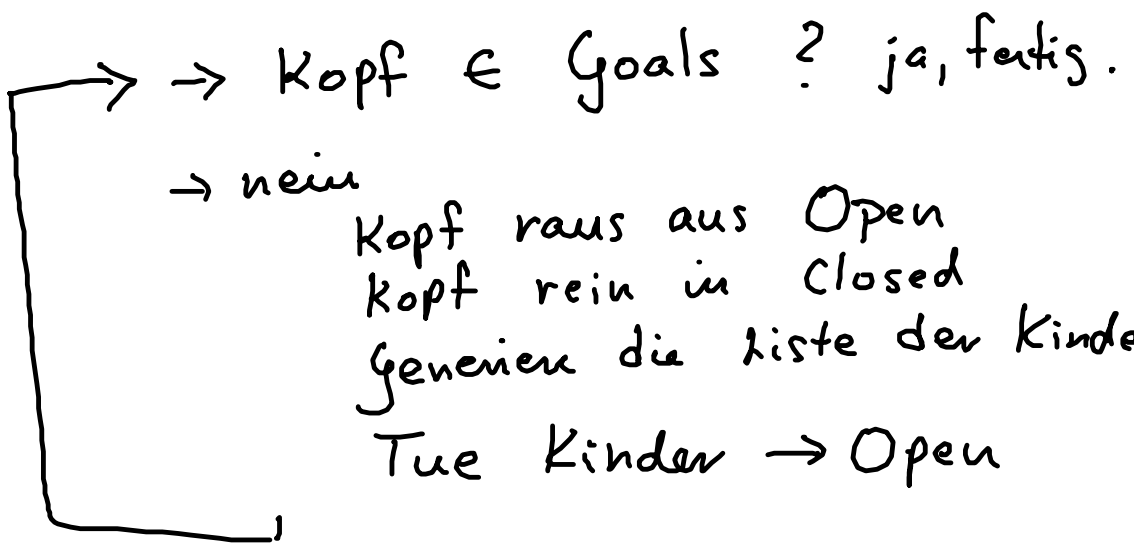 → Kopf ∈ Goals ? ja, fertig.
→ nein
Kopf raus aus Open
Kopf rein in Closed
Generiere die Liste der Kinde
Tue Kinder → Open